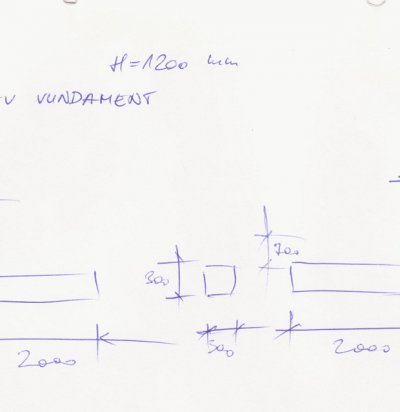 H=1200 mm
VUNDAMENT
700
300
300
2000
2000